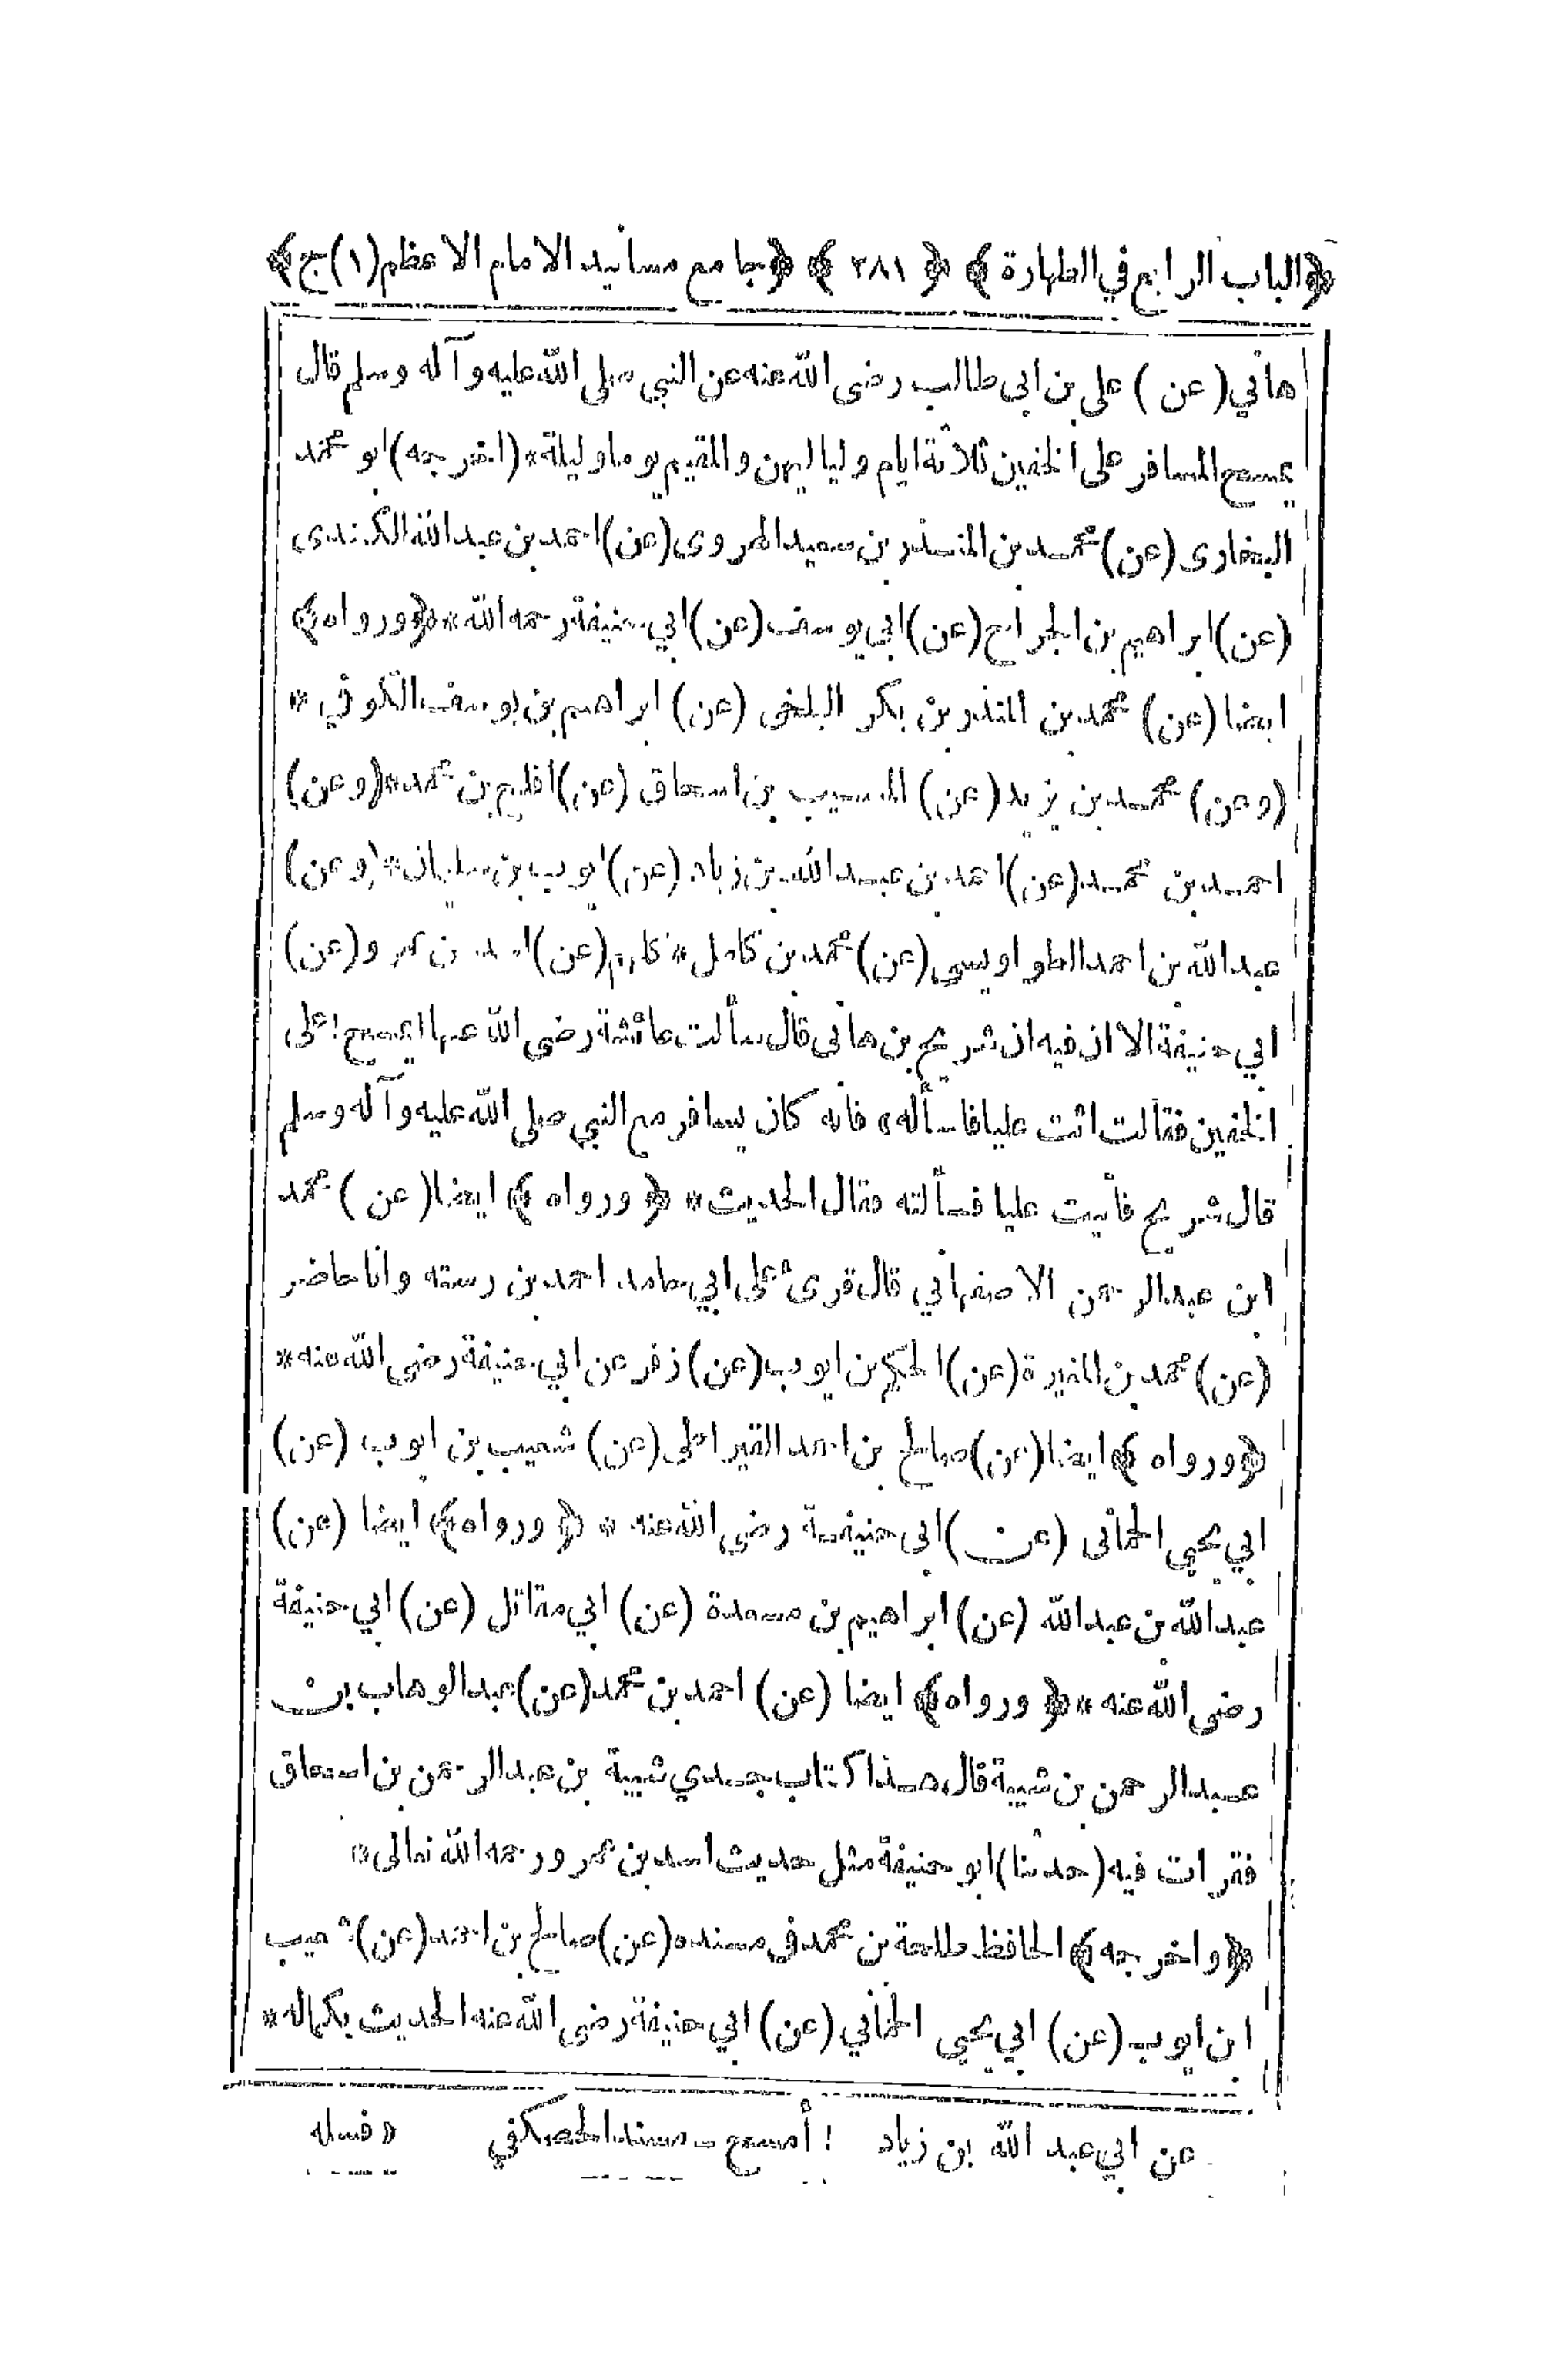 ﴿الباب الرابع في الطهارة﴾ ﴿٣٨١﴾ ﴿جامع مسانيد الامام الاعظم (١) ج﴾
هانٔي (عن) علي بن ابي طالب رضى الله عنه عن النبي صلى الله عليه وآله وسلم قال
يمسح المسافر على الخفين ثلاثة ايام ولياليهن والمقيم يوما وليلة * (اخرجه) ابو محمد
البخارى (عن) محمد بن المنذر بن سعيد الهروى (عن) احمد بن عبد الله الكندى
(عن) ابراهيم بن الجراح (عن) ابي يوسف (عن) ابي حنيفة رحمه الله * ﴿ورواه﴾
ايضا (عن) محمد بن المنذر بن بكر البلخى (عن) ابراهيم بن يوسف الكوفي *
(وعن) محمد بن يزيد (عن) المسيب بن اسحاق (عن) افليح بن محمد * (وعن)
احمد بن محمد (عن) احمد بن عبد الله بن زياد (عن) ايوب بن سليمان * (وعن)
عبد الله بن احمد الطواويسى (عن) محمد بن كامل * كلهم (عن) اسد بن عمرو (عن)
ابي حنيفة الا ان فيه ان شريح بن هانى قال سألت عائشة رضى الله عنها ايمسح ! على
الخفين فقالت ائت عليا فاسأله » فانه كان يسافر مع النبي صلى الله عليه وآله وسلم
قال شريح فأتيت عليا فسألته فقال الحديث * ﴿ورواه﴾ ايضا (عن) محمد
ابن عبد الرحمن الاصفهاني قال قرئ على ابي حامد احمد بن رسته وانا حاضر
(عن) محمد بن المغيرة (عن) الحكم بن ايوب (عن) زفر عن ابي حنيفة رضى الله عنه *
﴿ورواه﴾ ايضا (عن) صالح بن احمد القيراطى (عن) شعيب بن ايوب (عن)
ابي يحيى الحماني (عن) ابى حنيفة رضى الله عنه * ﴿ورواه﴾ ايضا (عن)
عبد الله بن عبد الله (عن) ابراهيم بن مسعدة (عن) ابي مقاتل (عن) ابي حنيفة
رضى الله عنه * ﴿ورواه﴾ ايضا (عن) احمد بن محمد (عن) عبد الوهاب بن
عبد الرحمن بن شيبة قال هذا كتاب جدي شيبة بن عبد الرحمن بن اسحاق
فقرات فيه (حدثنا) ابو حنيفة مثل حديث اسد بن عمرو رحمه الله تعالى *
﴿واخرجه﴾ الحافظ طلحة بن محمد فى مسنده (عن) صالح بن احمد (عن) شعيب
ابن ايوب (عن) ابي يحيى الحماني (عن) ابي حنيفة رضى الله عنه الحديث بكماله *
عن ابي عبد الله بن زياد ! أمسح - مسند الحصكفي » فسله